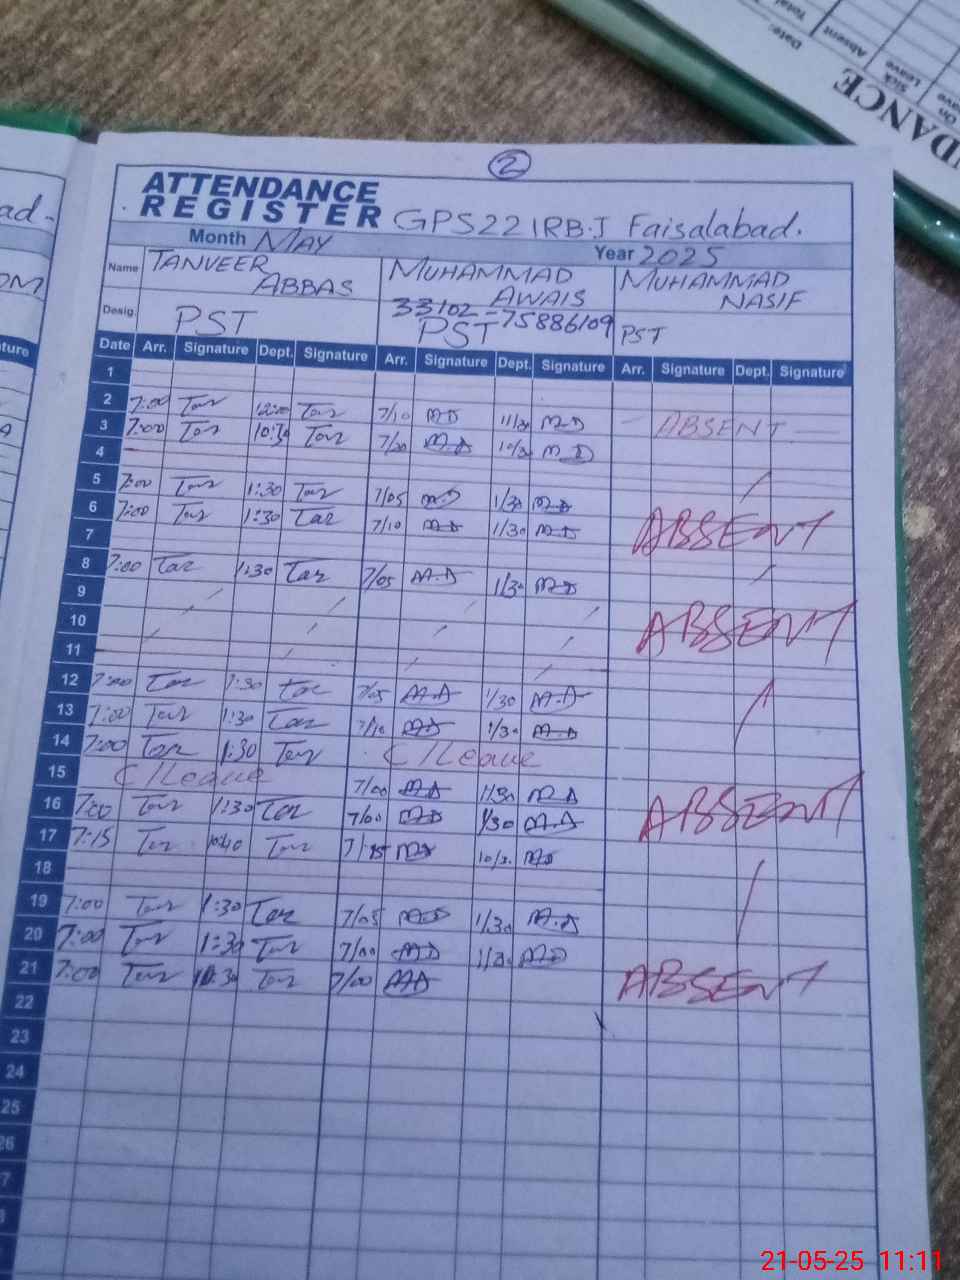 2
ATTENDANCE
REGISTER GPS 221RB.J Faisalabad.
Month MAY Year 2025
Name TANVEER ABBAS MUHAMMAD AWAIS MUHAMMAD NASIF
33102-75886109
Desig. PST PST PST
Date Arr. Signature Dept. Signature Arr. Signature Dept. Signature Arr. Signature Dept. Signature
1
2 7:00 Tar 12:00 Tar 7/10 M.D M.D
3 7:00 Tar 10:30 Tar 7/20 M.D M.D ABSENT
4
5 7:00 Tar 1:30 Tar 7/05 M.D 1/30 M.D
6 7:00 Tar 1:30 Tar 7/10 M.D 1/30 M.D
7 ABSENT
8 7:00 Tar 1:30 Tar 7/05 M.D 1/30 M.D
9
10 ABSENT
11
12 7:00 Tar 1:30 Tar 7/05 M.D 1/30 M.D
13 7:00 Tar 1:30 Tar 7/10 M.D 1/30 M.D
14 7:00 Tar 1:30 Tar C/Leave
15 C/Leave 7/00 M.D 1/30 M.D
16 7:00 Tar 1:30 Tar 7/00 M.D 1/30 M.D ABSENT
17 7:15 Tar 10:40 Tar 7/15 M.D M.D
18
19 7:00 Tar 1:30 Tar 7/05 M.D 1/30 M.D
20 7:00 Tar 1:30 Tar 7/00 M.D M.D
21 7:00 Tar Tar 7/00 M.D ABSENT
22
23
24
25
26
ad.
ture
DANCE
Date:
Total
Absent
Sick
Leave
On
21-05-25 11:11